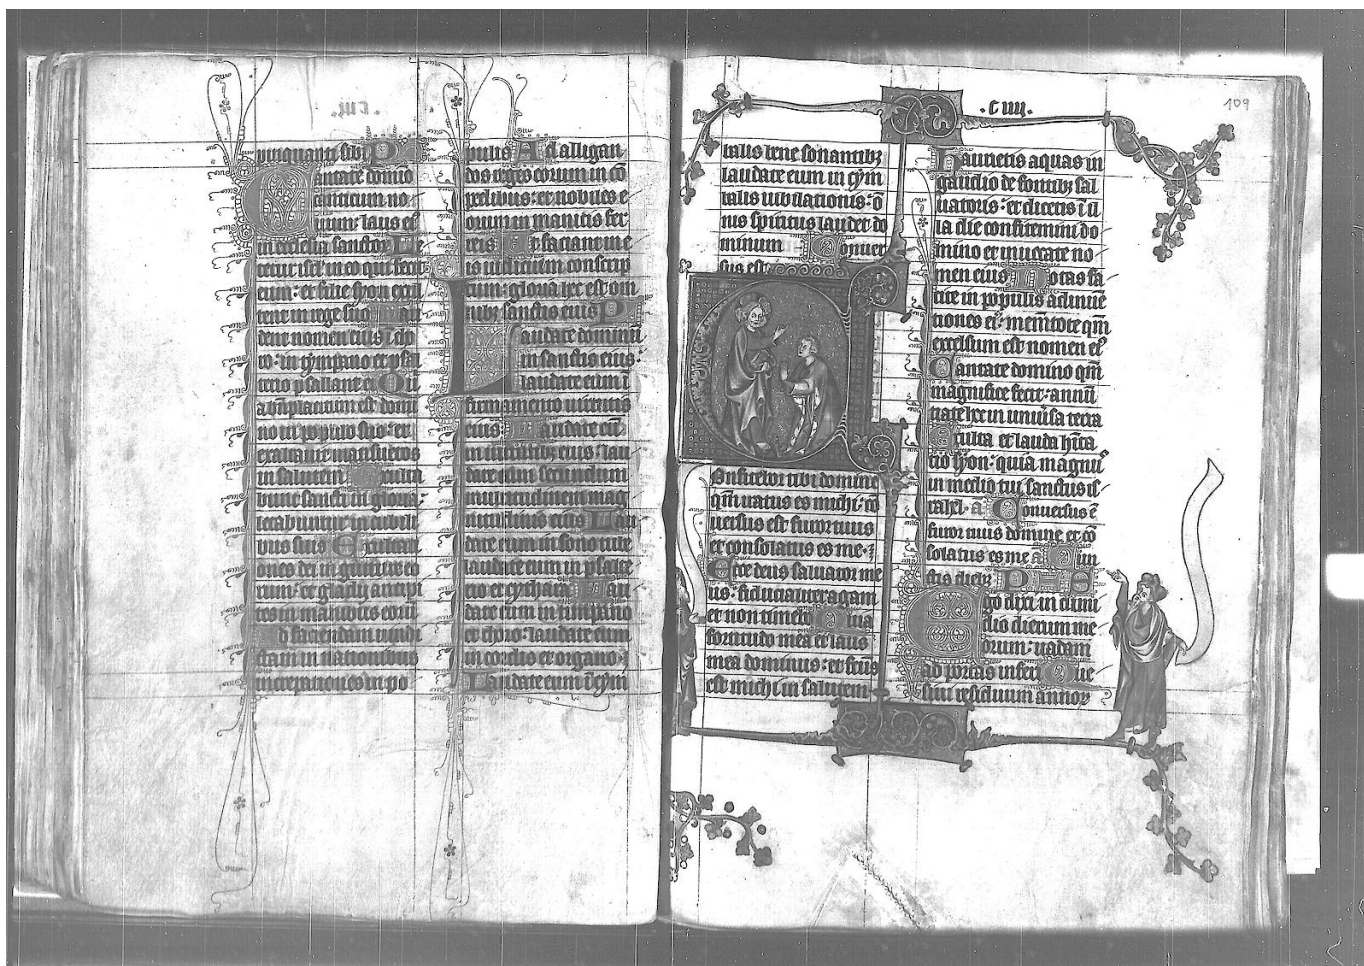 pinquanti sibi P
Cantate domio
canticum no
uum: laus eiꝰ
in ecclesia sanctoꝝ Le
tetur isrl in eo qui fecit
eum: et filie syon exul
tent in rege suo Lau
dent nomen eius ī cho
ro: in tympano et psal
terio psallant ei Qui
a bn̄placitum est domi
no in populo suo: et
exaltauit mansuetos
in salutem Exulta
bunt sancti in gloria:
letabuntur in cubili
bus suis Exultati
ones dei in gutture eo
rum: et gladii ancipi
tes in manibus eoꝝ
Ad faciendam uindi
ctam in nationibus
increpationes in po
pulis Ad alligan
dos reges eorum in cō
pedibus: et nobiles e
orum in manicis fer
reis Et faciant in e
is iudicium conscrip
tum: gloria hec est om
nibꝫ sanctis eius P
Laudate dominū
in sanctis eius:
laudate eum ī
firmamento uirtutis
eius Laudate eū
in uirtutibꝫ eius: lau
date eum secundum
multitudinem mag
nitudinis eius Lau
date eum in sono tube
laudate eum in psalte
rio et cythara Lau
date eum in timpano
et choro: laudate eum
in cordis et organo
Laudate eum ī cym
.c iiii.
109
balis bene sonantibꝫ
laudate eum in cym
balis iubilationis: ō
nis spiritus laudet do
minum Conuer
sus est
Confitebor tibi domine
qm̄ iratus es michi: cō
uersus est furor tuus
et consolatus es me
Ecce deus saluator me
us: fiducialiter agam
et non timebo Quia
fortitudo mea et laus
mea dominus: et factꝰ
est michi in salutem
Haurietis aquas in
gaudio de fontibꝫ sal
uatoris: et dicetis ī il
la die confitemini do
mino et inuocate no
men eius Notas fa
cite in populis adinuē
tiones eiꝰ: mem̄tote qm̄
excelsum est nomen eiꝰ
Cantate domino qm̄
magnifice fecit: annū
tiate hec in uniūsa terra
Exulta et lauda hīta
tio syon: quia magnꝰ
in medio tui sanctus is
rahel. a Conuersus ē
furor tuus domine et cō
solatus es me a Cun
ctis diebꝫ P S
Ego dixi in dimi
dio dierum me
orum: uadam
ad portas inferi Que
siui residuum annoꝝ